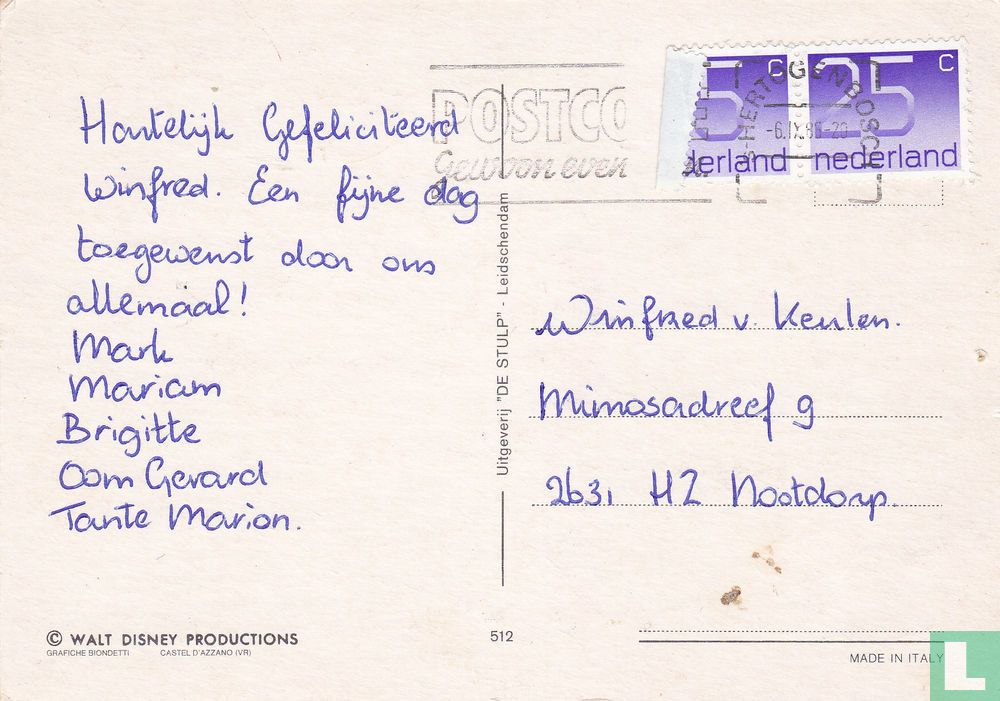 Hartelijk Gefeliciteerd
Winfred. Een fijne dag
toegewenst door ons
allemaal!
Mark
Mariam
Brigitte
Oom Gerard
Tante Marion.
© WALT DISNEY PRODUCTIONS
GRAFICHE BIONDETTI CASTEL D'AZZANO (VR)
POSTCO
Gewoon even
Uitgeverij "DE STULP" - Leidschendam
512
5 C 25 C
'S-HERTOGENBOSCH
-6.IX.86-20
nederland nederland
Winfred v. Keulen.
Mimosadreef 9
2631 HZ Nootdorp.
MADE IN ITALY
L